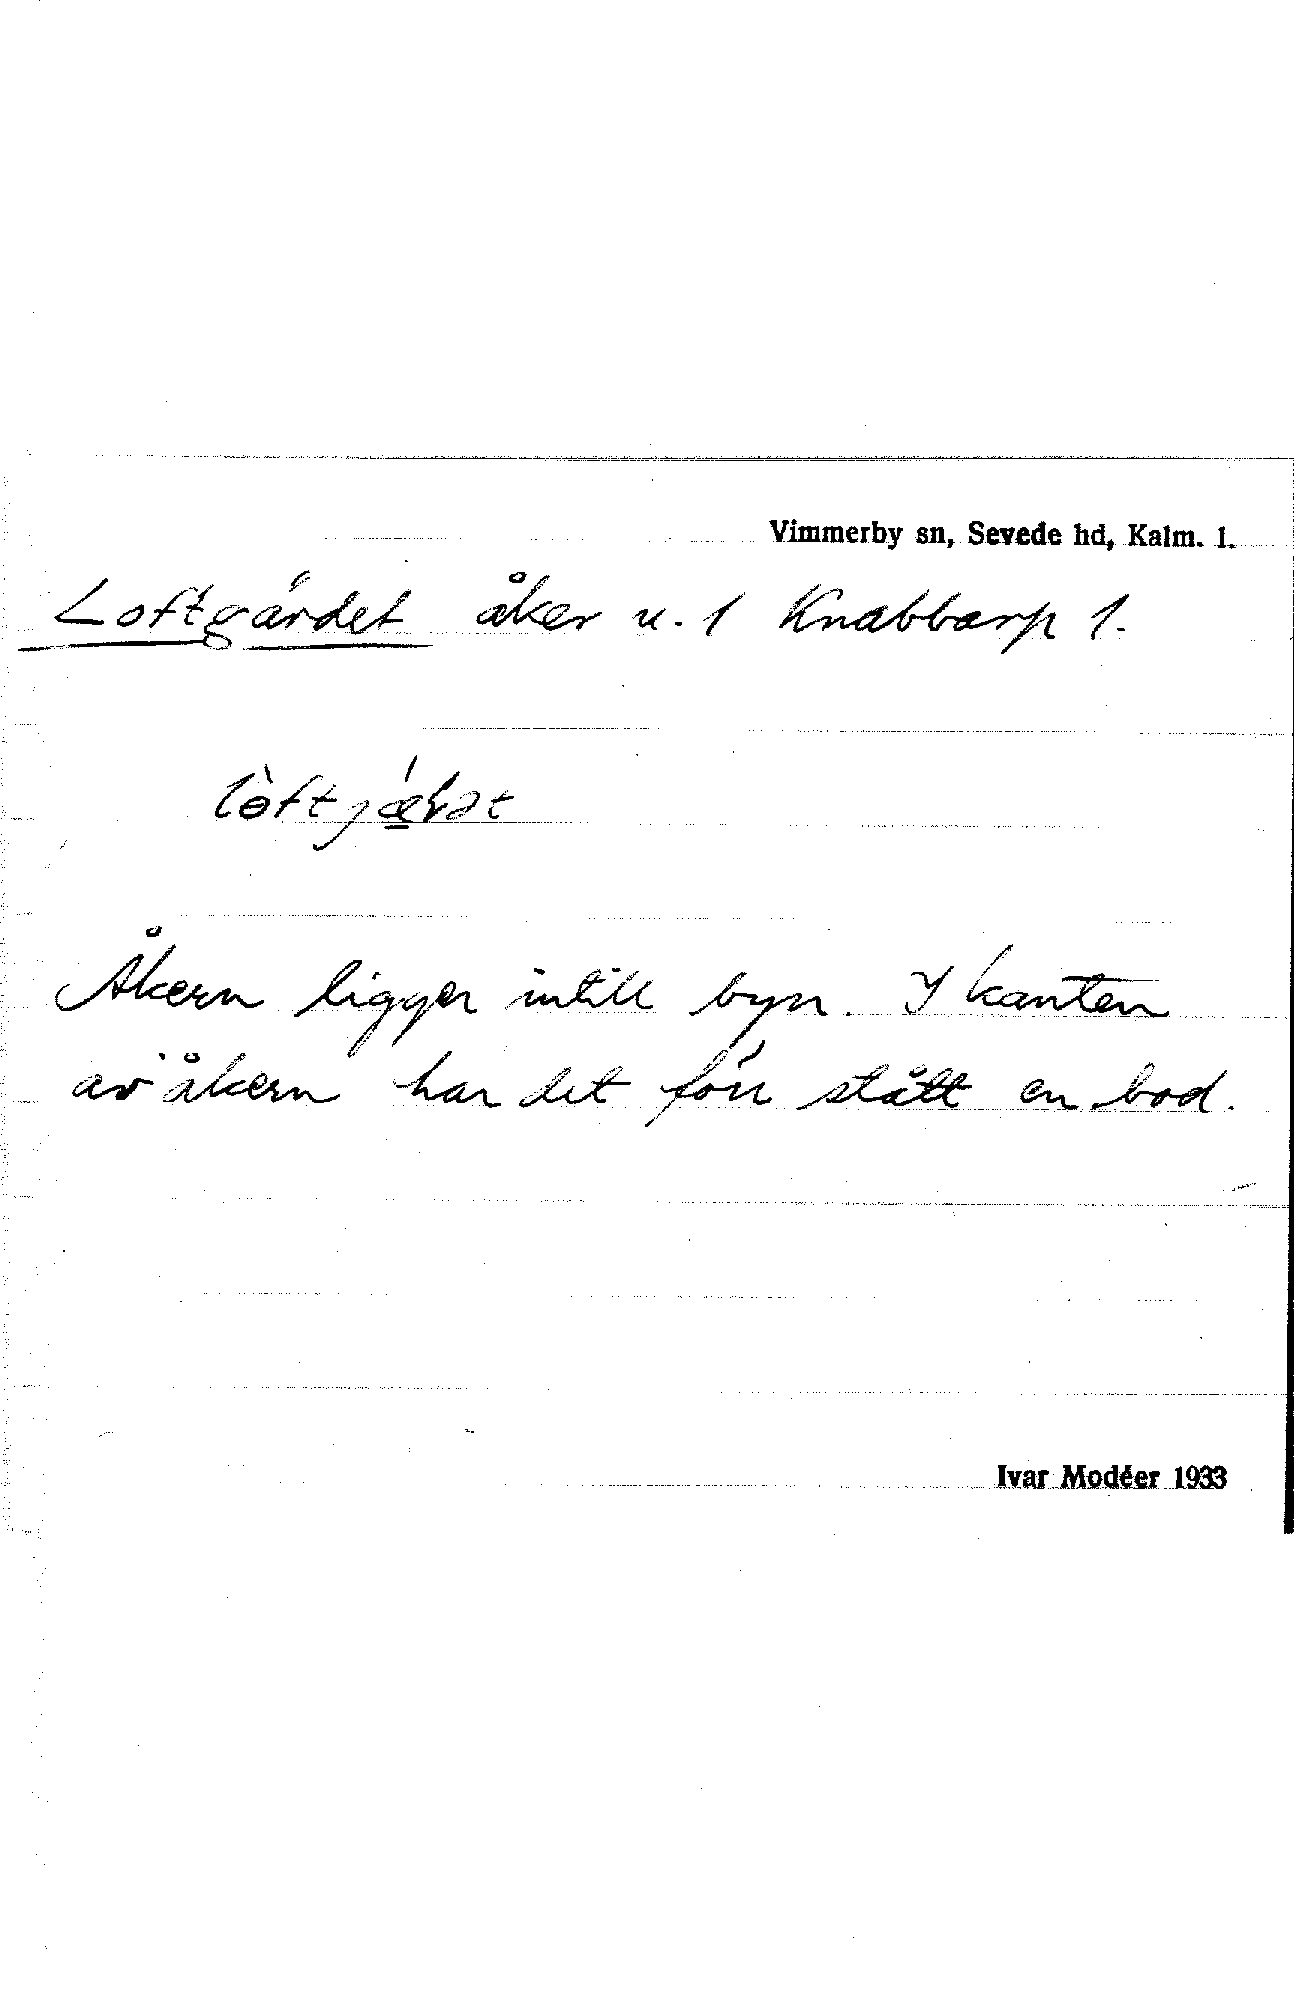 Vimmerby sn, Sevede hd, Kalm. l.
Loftgärdet åker u. 1 Knabbarp 1.
Åkern ligger intill byn. I kanten
av åkern har det förr stått en bod.
Ivar Modéer 1933